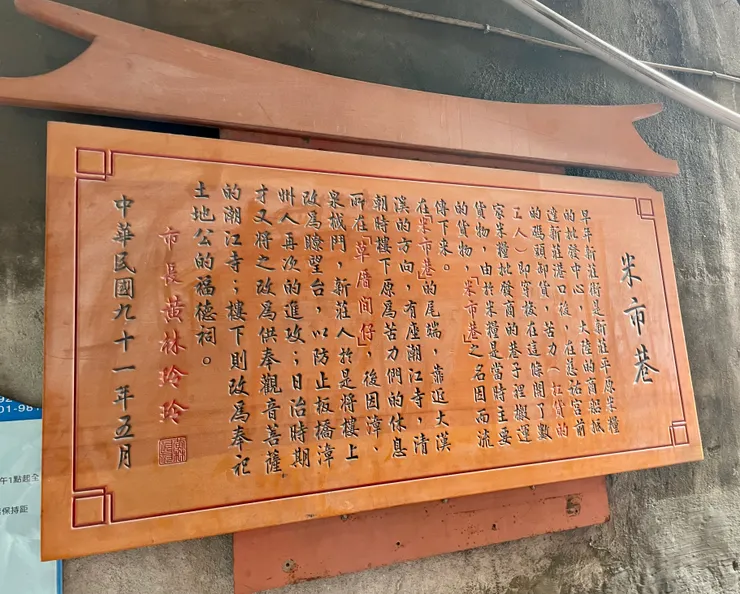 米市巷
早年新莊街是新莊平原米糧
的批發中心，大陸的商船抵
達新莊港口後，在慈祐宮前
的碼頭卸貨，苦力（扛貨的
工人）即穿梭在這條開了數
家米糧批發商的巷子裡搬運
貨物，由於米糧是當時主要
的貨物，「米市巷」之名因而流
傳下來。
在米市巷的尾端，靠近大漢
溪的方向，有座潮江寺，清
朝時樓下原為苦力們的休息
所在「草厝間仔」，後因漳、
泉械鬥，新莊人於是將樓上
改為瞭望台，以防止板橋漳
州人再次的進攻；日治時期
才又將之改為供奉觀音菩薩
的潮江寺；樓下則改為奉祀
土地公的福德祠。
市長黃林玲玲
中華民國九十一年五月
01-981
午1點起全
保持距